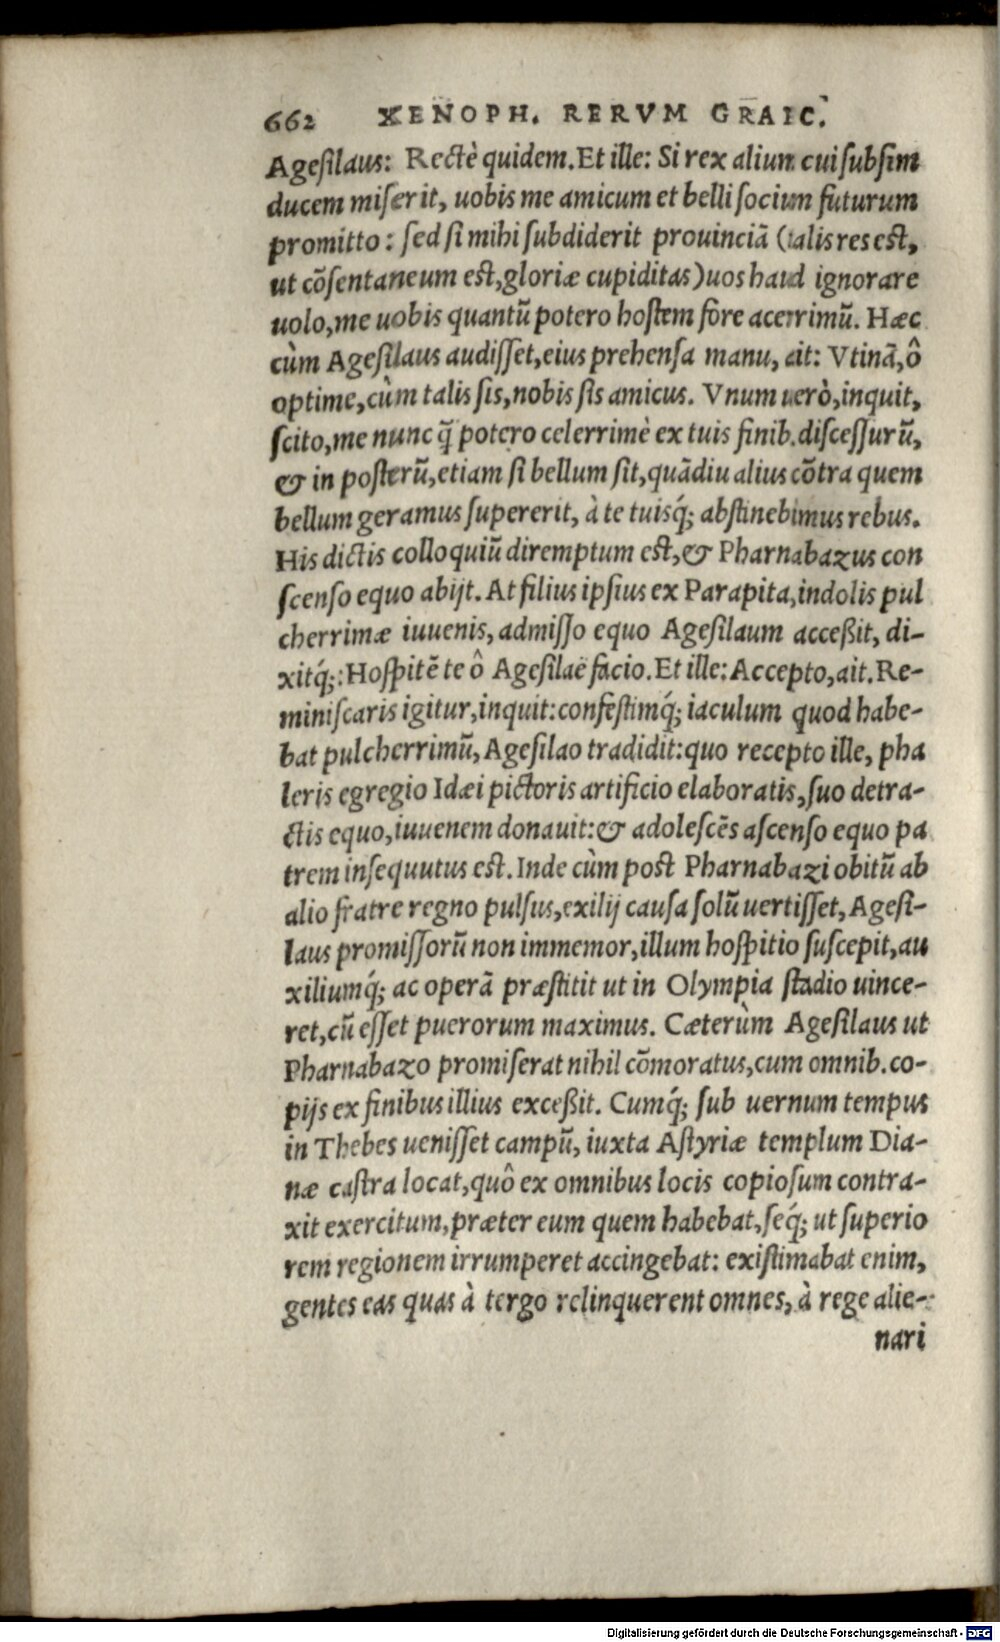 662 XENOPH. RERVM GRAEC.
Agesilaus: Rectè quidem. Et ille: Si rex alium cui subsim
ducem miserit, uobis me amicum et belli socium futurum
promitto: sed si mihi subdiderit prouinciã (talis res est,
ut cõsentaneum est, gloriæ cupiditas) uos haud ignorare
uolo, me uobis quantũ potero hostem fore acerrimũ. Hæc
cùm Agesilaus audisset, eius prehensa manu, ait: Vtinã, ô
optime, cùm talis sis, nobis sis amicus. Vnum uerò, inquit,
scito, me nunc q̃ potero celerrimè ex tuis finib. discessurũ,
& in posterũ, etiam si bellum sit, quãdiu alius cõtra quem
bellum geramus supererit, à te tuisq́; abstinebimus rebus.
His dictis colloquiũ diremptum est, & Pharnabazus con
scenso equo abijt. At filius ipsius ex Parapita, indolis pul
cherrimæ iuuenis, admisso equo Agesilaum acceßit, di-
xitq́;: Hospitẽ te ô Agesilaë facio. Et ille: Accepto, ait. Re-
miniscaris igitur, inquit: confestimq́; iaculum quod habe-
bat pulcherrimũ, Agesilao tradidit: quo recepto ille, pha
leris egregio Idæi pictoris artificio elaboratis, suo detra-
ctis equo, iuuenem donauit: & adolescẽs ascenso equo pa
trem insequutus est. Inde cùm post Pharnabazi obitũ ab
alio fratre regno pulsus, exilij causa solũ uertisset, Agesi-
laus promissorũ non immemor, illum hospitio suscepit, au
xiliumq́; ac operã præstitit ut in Olympia stadio uince-
ret, cũ esset puerorum maximus. Cæterùm Agesilaus ut
Pharnabazo promiserat nihil cõmoratus, cum omnib. co-
pijs ex finibus illius exceßit. Cumq́; sub uernum tempus
in Thebes uenisset campũ, iuxta Astyriæ templum Dia-
næ castra locat, quô ex omnibus locis copiosum contra-
xit exercitum, præter eum quem habebat, seq́; ut superio
rem regionem irrumperet accingebat: existimabat enim,
gentes eas quas à tergo relinquerent omnes, à rege alie-
nari
Digitalisierung gefördert durch die Deutsche Forschungsgemeinschaft - DFG